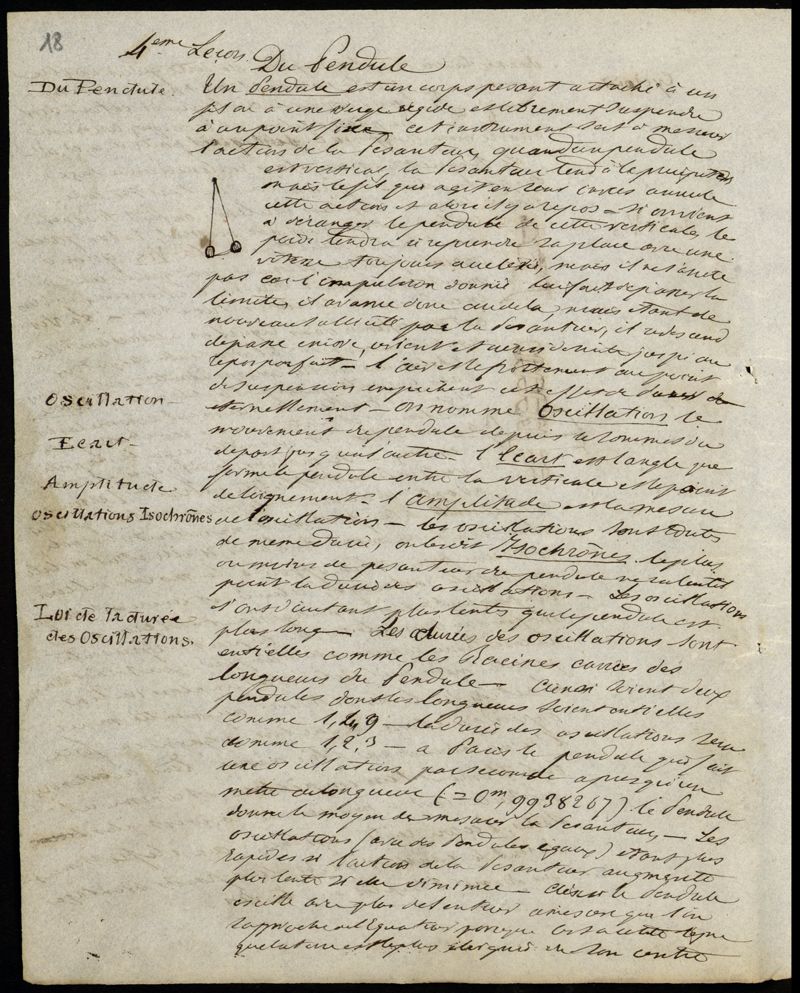 18
4eme Leçon.
Du Pendule
Du Pendule.
Un Pendule est un corps pesant attaché à un
fil ou à une verge rigide et librement suspendu
à un point fixe cet instrument sert à mesurer
l'action de la Pesanteur, quand un pendule
est vertical, la Pesanteur tend à le précipiter
mais le fil qui agit en sens annule
cette action et alors il y a repos - si on vient
à déranger le pendule de cette verticale, le
poids tendra à reprendre sa place avec une
vitesse toujours mais il ne s'arrête
pas car l'impulsion donnée lui fait dépasser la
limite, il avance donc au delà, mais étant de
nouveau par la Pesanteur, il redescend
dépasse encore, revient et ainsi de suite jusqu'au
repos parfait - l'air et le frottement au point
de suspension empêchent cet effet de
éternellement - on nomme Oscillation le
Oscillation
mouvement du pendule depuis le sommet du
départ jusqu'à l'autre - l'Ecart est l'angle que
Ecart -
forme le pendule entre la verticale et le point
d'éloignement - l'amplitude est la mesure
Amplitude
de l'oscillation - les oscillations sont toutes
Oscillations Isochrônes
de même durée, on les dit Isochrônes le plus
ou moins de pesanteur du pendule ne ralentit
point la durée des oscillations - Les oscillations
sont d'autant plus lentes que le pendule est
Loi de la durée
plus long - Les durées des oscillations sont
des Oscillations.
entr'elles comme les Racines carrées des
longueurs du Pendule - soient deux
pendules dont les longueurs soient entr'elles
comme 1, 4, 9 - la durée des oscillations sera
comme 1, 2, 3 - a Paris le pendule qui fait
une oscillation par seconde a presqu'un
mètre de longueur (= 0m, 9938267) le Pendule
donne le moyen de mesurer la Pesanteur - Les
oscillations (avec des Pendules égaux) étant plus
rapides si l'action de la Pesanteur augmente
plus lente si elle diminue - le Pendule
oscille avec plus de lenteur à mesure que l'on
approche de l'Equateur parce que c'est à cette ligne
que la terre est le plus éloignée de son centre